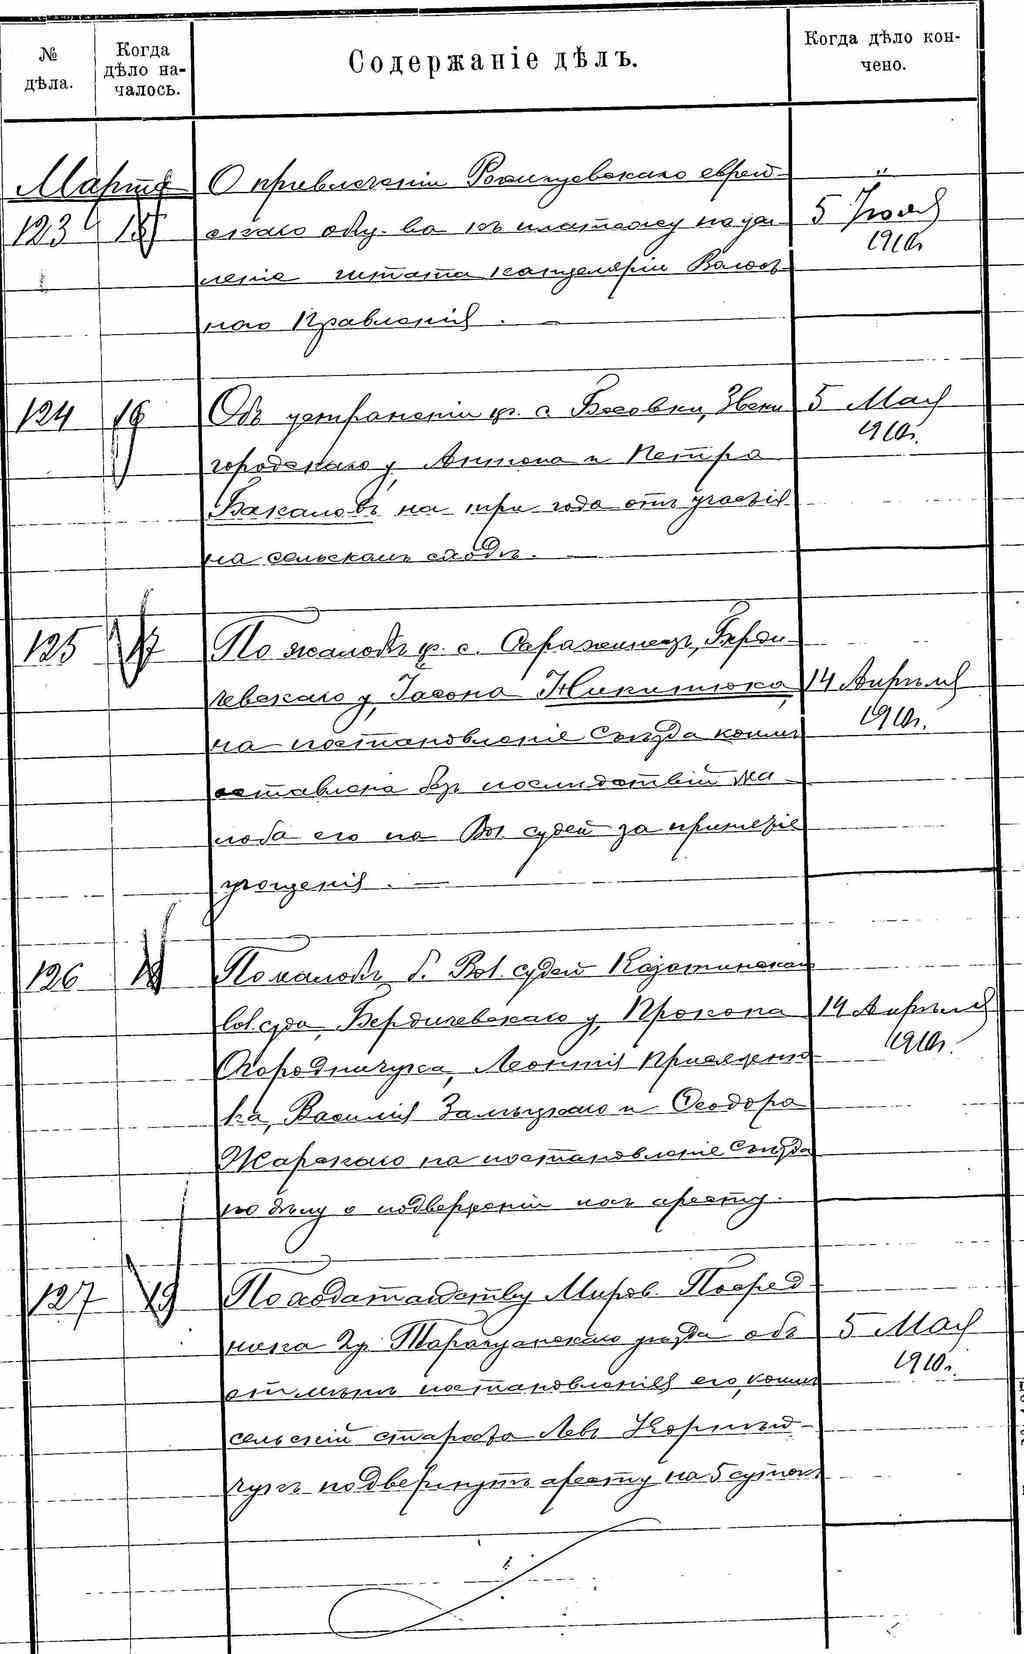 № дѣла.
Когда дѣло на- чалось.
Содержаніе дѣлъ.
Когда дѣло кон- чено.
Марта
123 15 О привлеченіи еврей- "
скаго общ-ва къ платежу на уси- 5 Іюля
леніе штата канцеляріи Волост- 1910г.
ного Правленія. —
124 16 Объ устраненіи кр. с. Босовки, Звени 5 Мая
городскаго у, Антона и Петра 1910г.
Бакаловъ на три года отъ участія
на сельскомъ сходѣ. —
125 17 По жалобѣ кр. с. Сараженецъ, Берди-
чевскаго у, Іасона Никитюка, 14 Апрѣля
на постановленіе Съѣзда коимъ 1910г.
оставлена безъ послѣдствій жа-
лоба его на Вол судей за принятіе
угощенія. —
126 18 По жалобѣ б. Вол. судей Казатинскаго
вол. суда, Бердичевскаго у, Прокопа 14 Апрѣля
Огородничука, Леонтія 1910г.
ка, Василія и Ѳеодора
Жарскаго на постановленіе Съѣзда
по дѣлу о подверженіи ихъ аресту.
127 19 По ходатайству Миров. Посред-
ника 2у. Таращанскаго уѣзда объ 5 Мая
отмѣнѣ постановленія его, коимъ 1910г.
сельскій староста Левъ
чукъ подвергнутъ аресту на 5 сутокъ